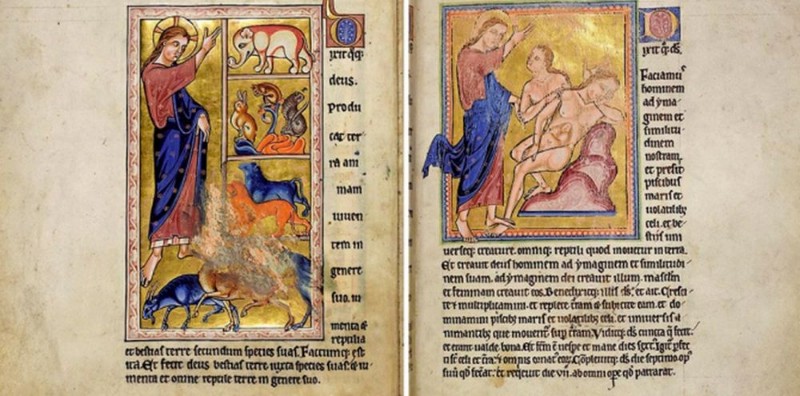 ixit q̄q;
deus.
Produ
cat ter
ra ani
mam
uiuen
tem in
genere
suo. iu
menta ⁊
reptilia
et bestias terre secundum species suas. Factumq; est
ita. Et fecit deus bestias terre iuxta species suas. ⁊ iu
menta et omne reptile terre in genere suo.
ixit q̄; ds̄.
Faciamus
hominem
ad yma
ginem et
similitu
dinem
nostram.
et presit
piscibus
maris et
uolatilib;
celi. et be
stiis uni
uerseq; creature. omniq; reptili quod mouetur in terra.
Et creauit deus hominem ad ymaginem et similitudi
nem suam. ad ymaginem dei creauit illum. masclm̄
et feminam creauit eos. Benedixitq; illis ds̄. et ait. Cresci
te ⁊ multiplicamini. et replete t̄ram ⁊ subicite eam. et do
minamini piscib; maris et uolatilib; celi. et uniuersis a
nimantib; que mouent̄ sup̄ t̄ram. Viditq; ds̄ cuncta q̄ fecit.
et erant ualde bona. Est f̄c̄m ē uespe et mane dies sext̄. Igit̄ p̄fc̄ti
st̄ celi et t̄ra. ⁊ omnis ornat̄ eoȝ. Cōpleuitq; ds̄ die septimo op̄
suū qd̄ fec̄at. et requieuit die vii. ab omni ope q̄d patrarat.